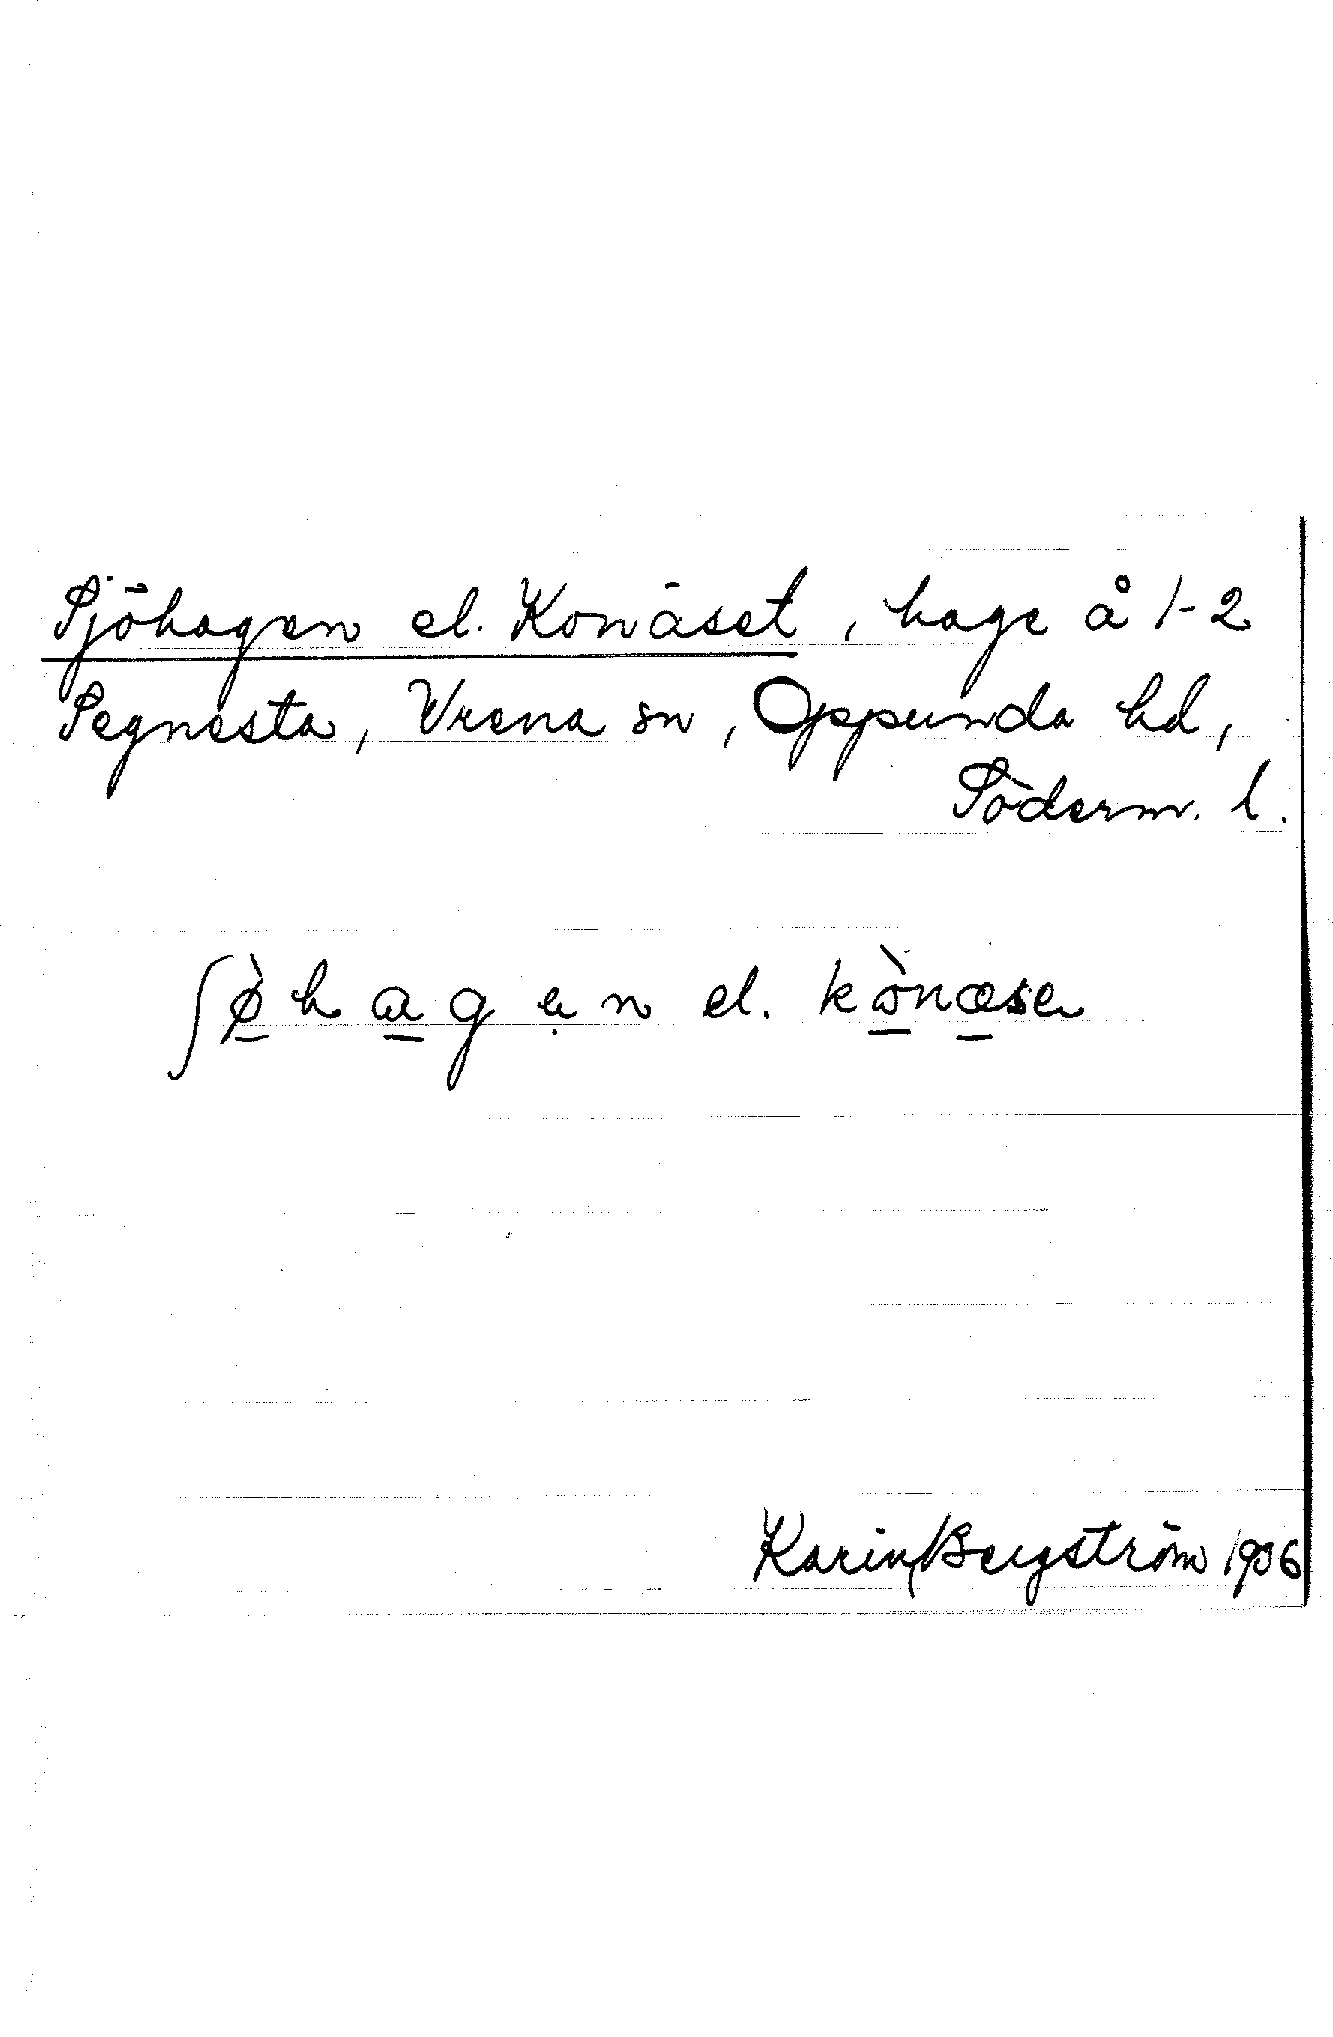 Sjöhagen el. Konäset, hage å 1-2
Segnesta, Vrena sn, Oppunda hd,
Söderm. l.
ʃø̱̀ha̱gẹn el. kò̱næ̱se
Karin Bergström 1936